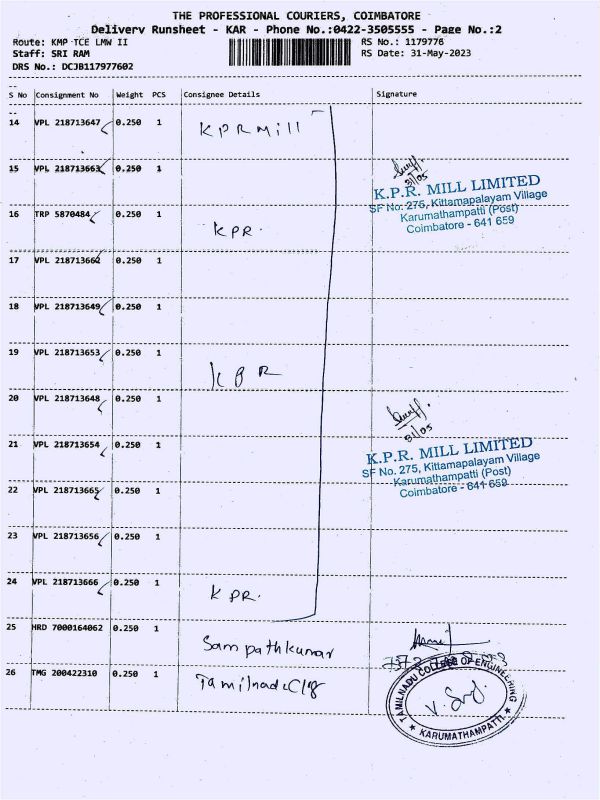 THE PROFESSIONAL COURIERS, COIMBATORE
Delivery Runsheet - KAR - Phone No.:0422-3505555 - Page No.:2
Route: KMP TCE LMW II RS No.: 1179776
Staff: SRI RAM RS Date: 31-May-2023
DRS No.: DCJB117977602
S No Consignment No Weight PCS Consignee Details Signature
14 VPL 218713647 0.250 1 KPR Mill
15 VPL 218713663 0.250 1
31/05
K.P.R. MILL LIMITED
SF No. 275, Kittamapalayam Village
Karumathampatti (Post)
Coimbatore - 641 659
16 TRP 5870484 0.250 1 KPR.
17 VPL 218713662 0.250 1
18 VPL 218713649 0.250 1
19 VPL 218713653 0.250 1 KPR
20 VPL 218713648 0.250 1
31/05
21 VPL 218713654 0.250 1
K.P.R. MILL LIMITED
SF No. 275, Kittamapalayam Village
Karumathampatti (Post)
Coimbatore - 641 659
22 VPL 218713665 0.250 1
23 VPL 218713656 0.250 1
24 VPL 218713666 0.250 1 KPR.
25 HRD 7000164062 0.250 1 Sampathkumar
26 TMG 200422310 0.250 1 Tamilnadu Clg
TAMILNADU COLLEGE OF ENGINEERING
KARUMATHAMPATTI